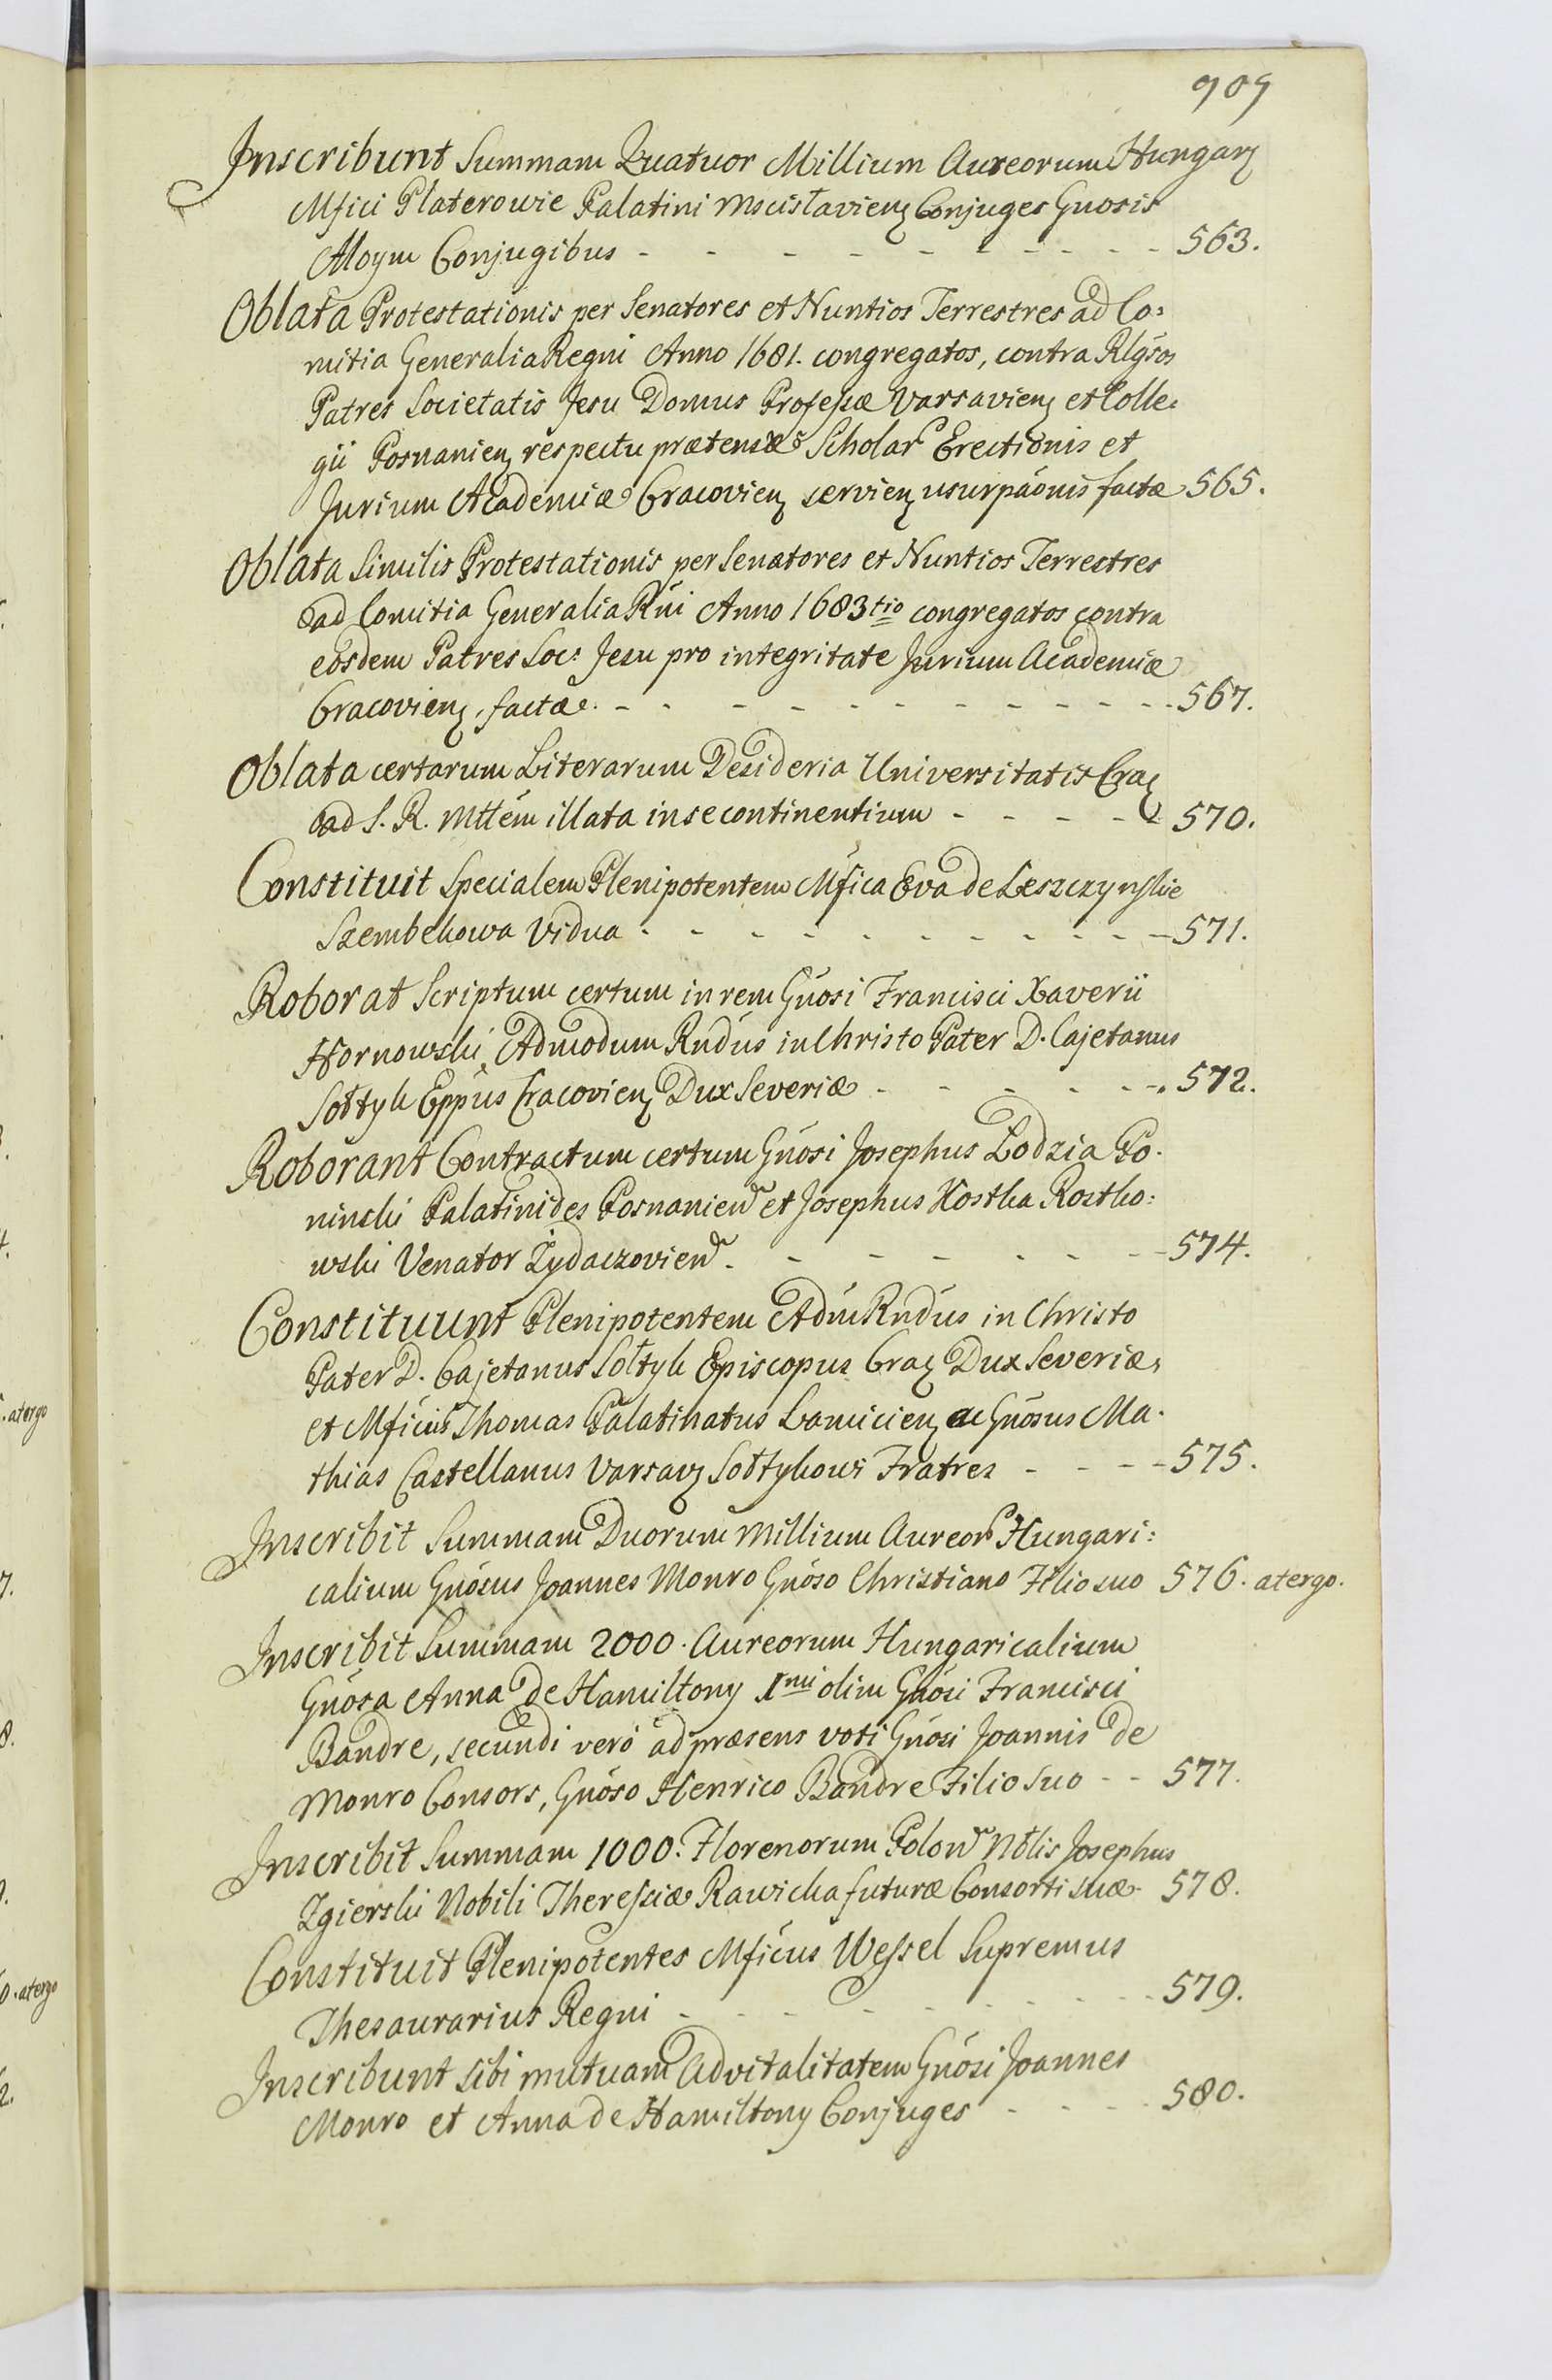 909
Inscribunt Summam Quatuor Millium Aureorum Hungarz
Mfici Platerowie Palatini Mscisłavienz Conjuges Gnosis
Aloym Conjugibus - - - - - - - - 563.
Oblata Protestationis per Senatores et Nuntios Terrestres ad Co:
mitia Generalia Regni Anno 1681. congregatos, contra Rlgsos
Patres Societatis Jesu Domus Professæ Varsavienz et Colle:
gii Posnanienz respectu prætensæ Scholar Erectionis et
Jurium Academiæ Cracovienz servienz usurpaónis factæ 565.
Oblata Similis Protestationis per Senatores et Nuntios Terrestres
ad Comitia Generalia Rni Anno 1683tio congregatos contra
eosdem Patres Soc: Jesu pro integritate Jurium Academiæ
Cracovienz, factæ. - - - - - - - - - 567.
Oblata certarum Literarum Desideria Universitatis Craz
ad S. R. Mttem illata in se continentium - - - - 570.
Constituit Specialem Plenipotentem Mfica Eva de Leszczynskie
Szembekowa Vidua - - - - - - - - - 571.
Roborat Scriptum certum in rem Gnosi Francisci Xaverii
Hornowski, Admodum Rndus in Christo Pater D. Cajetanus
Sołtyk Eppus Cracovienz Dux Severiæ - - - - - 572.
Roborant Contractum certum Gnosi Josephus Łodzia Po-
ninski Palatinides Posnanien et Josephus Kostka Rostko:
wski Venator Zydaczovien - - - - - - 574.
Constituunt Plenipotentem Adm Rndus in Christo
Pater D. Cajetanus Sołtyk Episcopus Craz Dux Severiæ,
et Mficus Thomas Palatinatus Lancicienz ac Gnosus Ma-
thias Castellanus Varsavz Sołtykowi Fratres - - - 575.
Inscribit Summam Duorum Millium Aureor Hungari:
calium Gnosus Joannes Monro Gnoso Christiano Filio suo 576. atergo.
Inscribit Summam 2000. Aureorum Hungaricalium
Gnosa Anna de Hamiltony 1mi olim Gnosi Francisci
Bandre, secundi vero ad præsens voti Gnosi Joannis de
Monro Consors, Gnoso Henrico Bandre Filio Suo - - 577.
Inscribit Summam 1000. Florenorum Polon Nblis Josephus
Zgierski Nobili Theressiæ Rawicka futuræ Consorti suæ 578.
Constituit Plenipotentes Mficus Wessel Supremus
Thesaurarius Regni - - - - - - - 579.
Inscribunt sibi mutuam Advitalitatem Gnosi Joannes
Monro et Anna de Hamiltony Conjuges - - - 580.